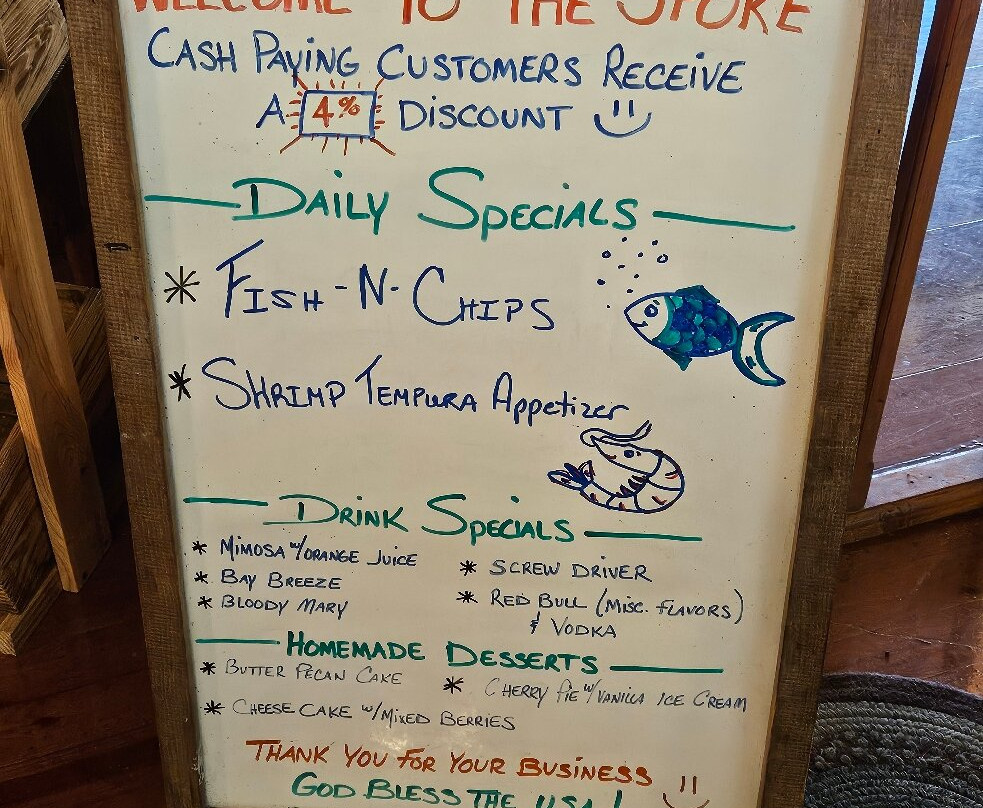 WELCOME TO THE SPOKE
CASH PAYING CUSTOMERS RECEIVE
A 4% DISCOUNT
DAILY SPECIALS
* FISH-N-CHIPS
* SHRIMP TEMPURA Appetizer
DRINK SPECIALS
* MIMOSA W/ORANGE JUICE
* BAY BREEZE
* BLOODY MARY
* SCREW DRIVER
* RED BULL (MISC. FLAVORS)
& VODKA
HOMEMADE DESSERTS
* BUTTER PECAN CAKE
* CHEESE CAKE W/MIXED BERRIES
* CHERRY PIE W/VANILLA ICE CREAM
THANK YOU FOR YOUR BUSINESS
GOD BLESS THE USA!